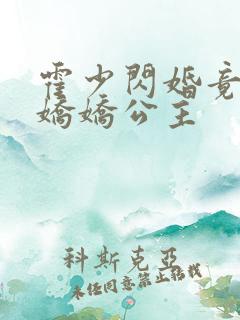 霍少閃婚竟
嬌嬌公主
科斯克亞
未经同意禁止转载